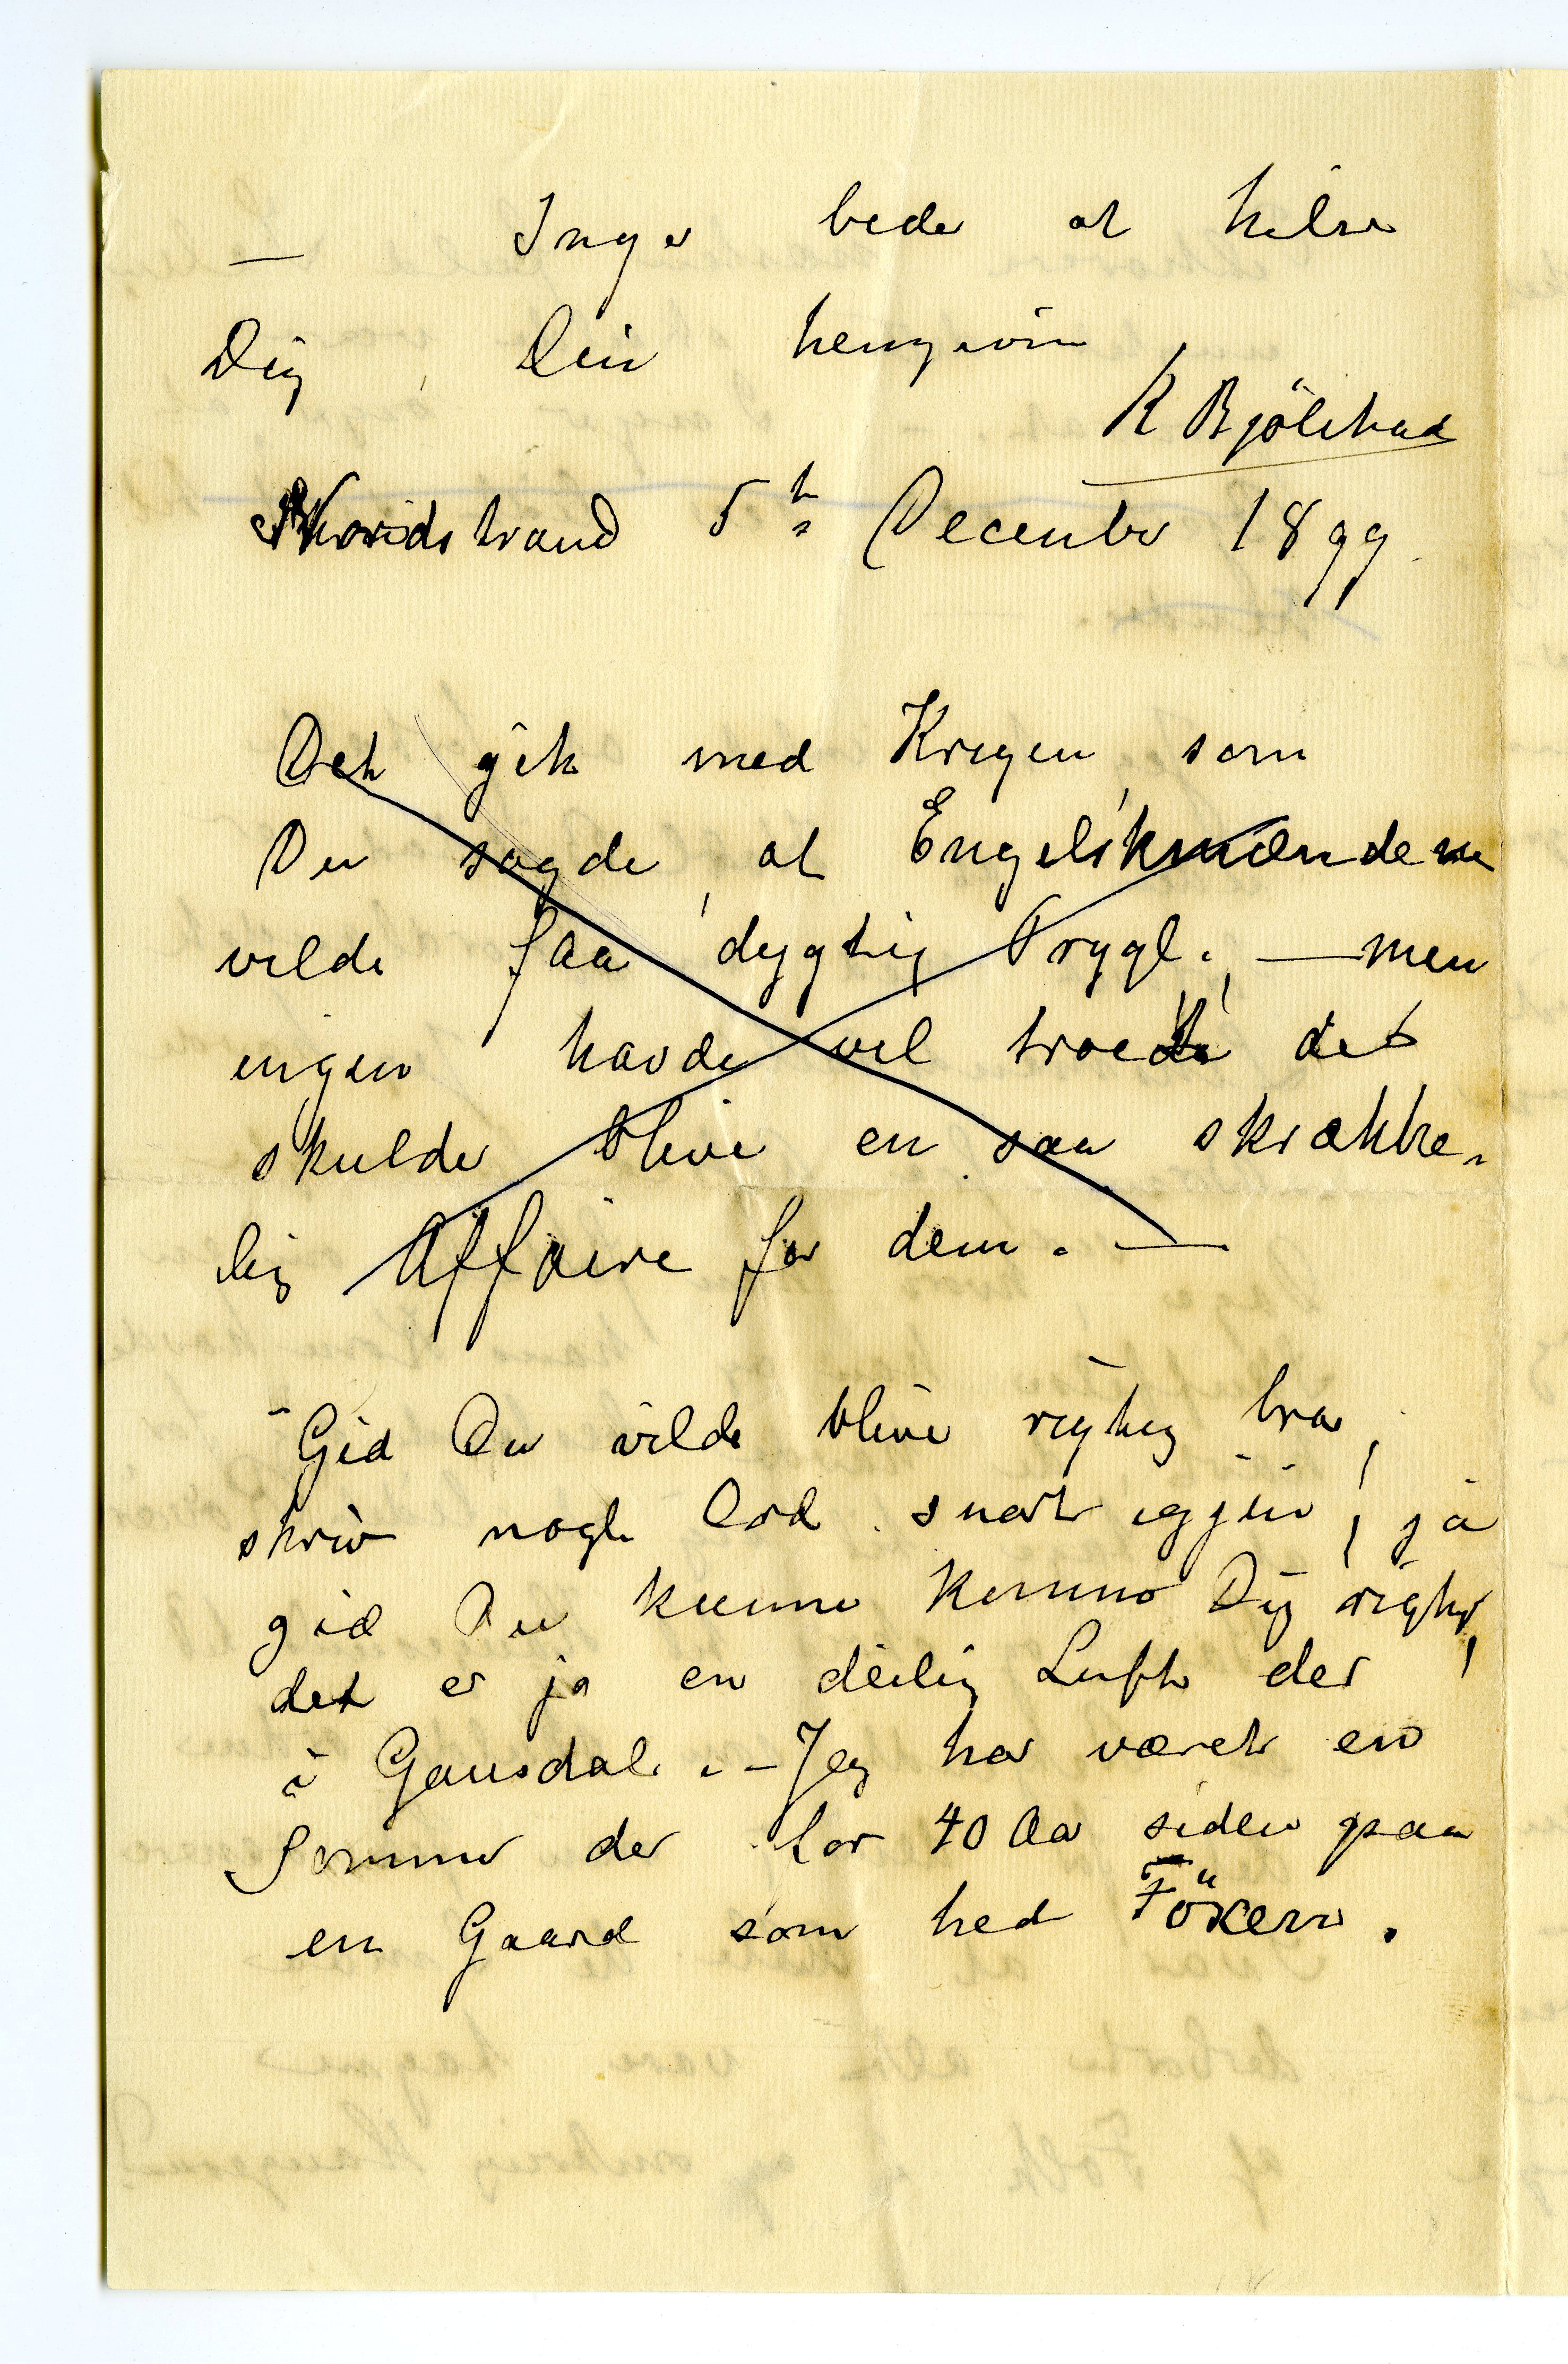 — Inger beder at hilse
Dig, Din hengivne
K Bjölstad
Nordstrand 5te December 1899
Det gik med Krigen som
Du sagde, at Engelskmændene
vilde faa dygtig Prygl. — men
ingen havde vel troet det
skulde blive en saa skrække-
lig Affaire for dem. —
Gid Du vilde blive rigtig bra,
skriv nogle Ord snart igjen, ja
gid Du kunne komme Dig rigtig,
det er ja en deilig Luft der
i Gausdal. — Jeg har været en
Sommer der for 40 Aar siden paa
en Gaard som hed